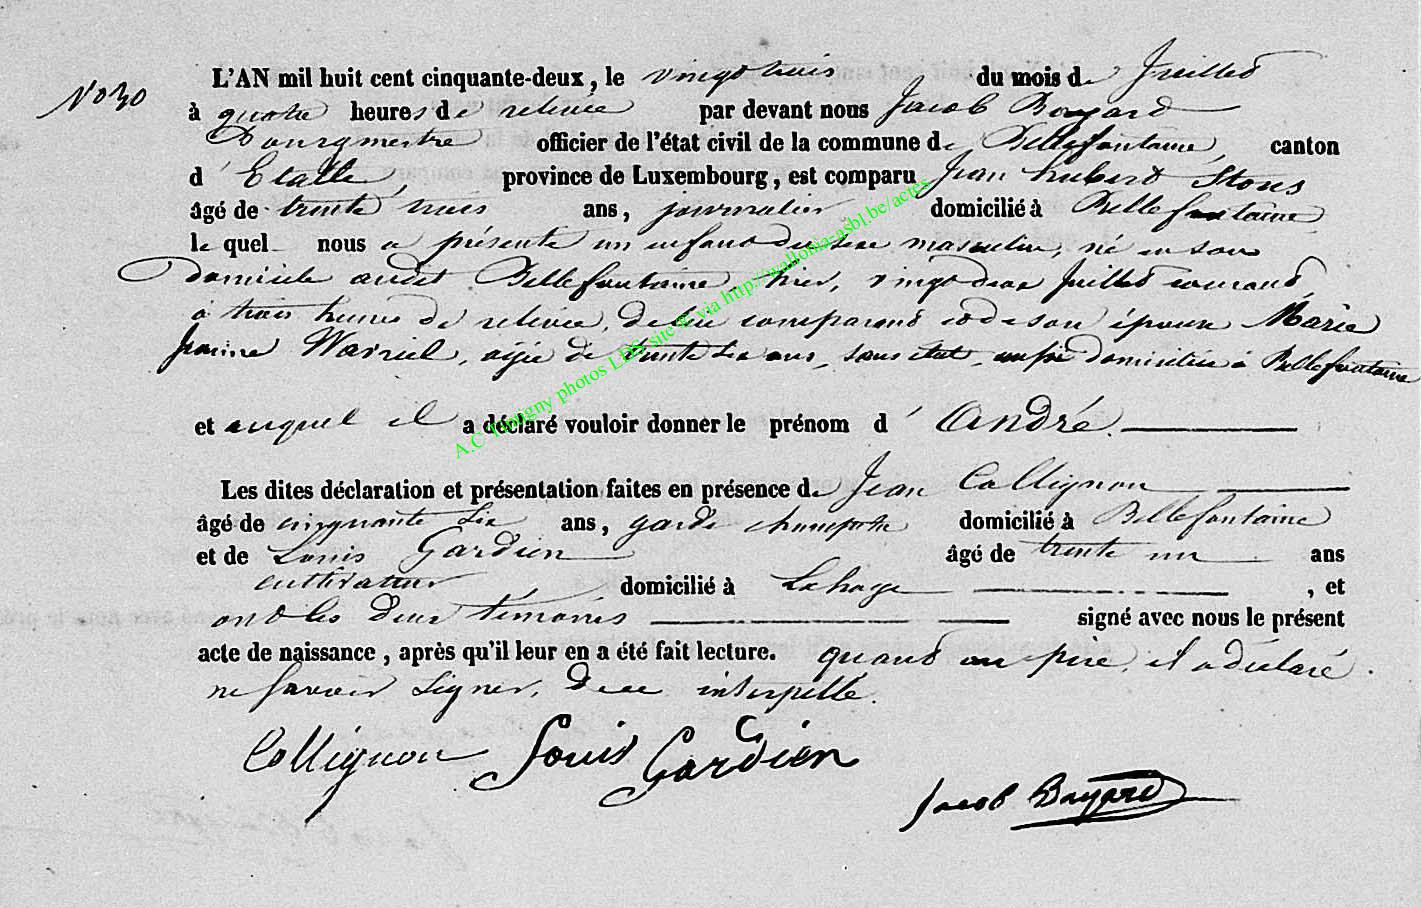 N° 30
L'AN mil huit cent cinquante-deux, le vingt trois du mois de Juillet
à quatre heures de relevée par devant nous Jacob Bayard
Bourgmestre officier de l'état civil de la commune de Bellefontaine, canton
d' Etalle, province de Luxembourg, est comparu Jean hubert
âgé de trente trois ans, journalier domicilié à Bellefontaine
le quel nous a présenté un enfant du sexe masculin, né en son
domicile audit Bellefontaine hier, vingt deux Juillet courant,
à trois heures de relevée, de lui comparant et de son épouse Marie
Jeanne agée de trente six ans, sans état, domiciliée à Bellefontaine
et auquel il a déclaré vouloir donner le prénom d' André.
Les dites déclaration et présentation faites en présence de Jean Collignon
âgé de cinquante six ans, garde champetre domicilié à Bellefontaine
et de Louis Gardien âgé de trente un ans
cultivateur domicilié à Lahage, et
ont les deux témoins signé avec nous le présent
acte de naissance, après qu'il leur en a été fait lecture. quant au père, il a déclaré
ne savoir signer, de ce interpellé.
Collignon Louis Gardien
Jacob Bayard